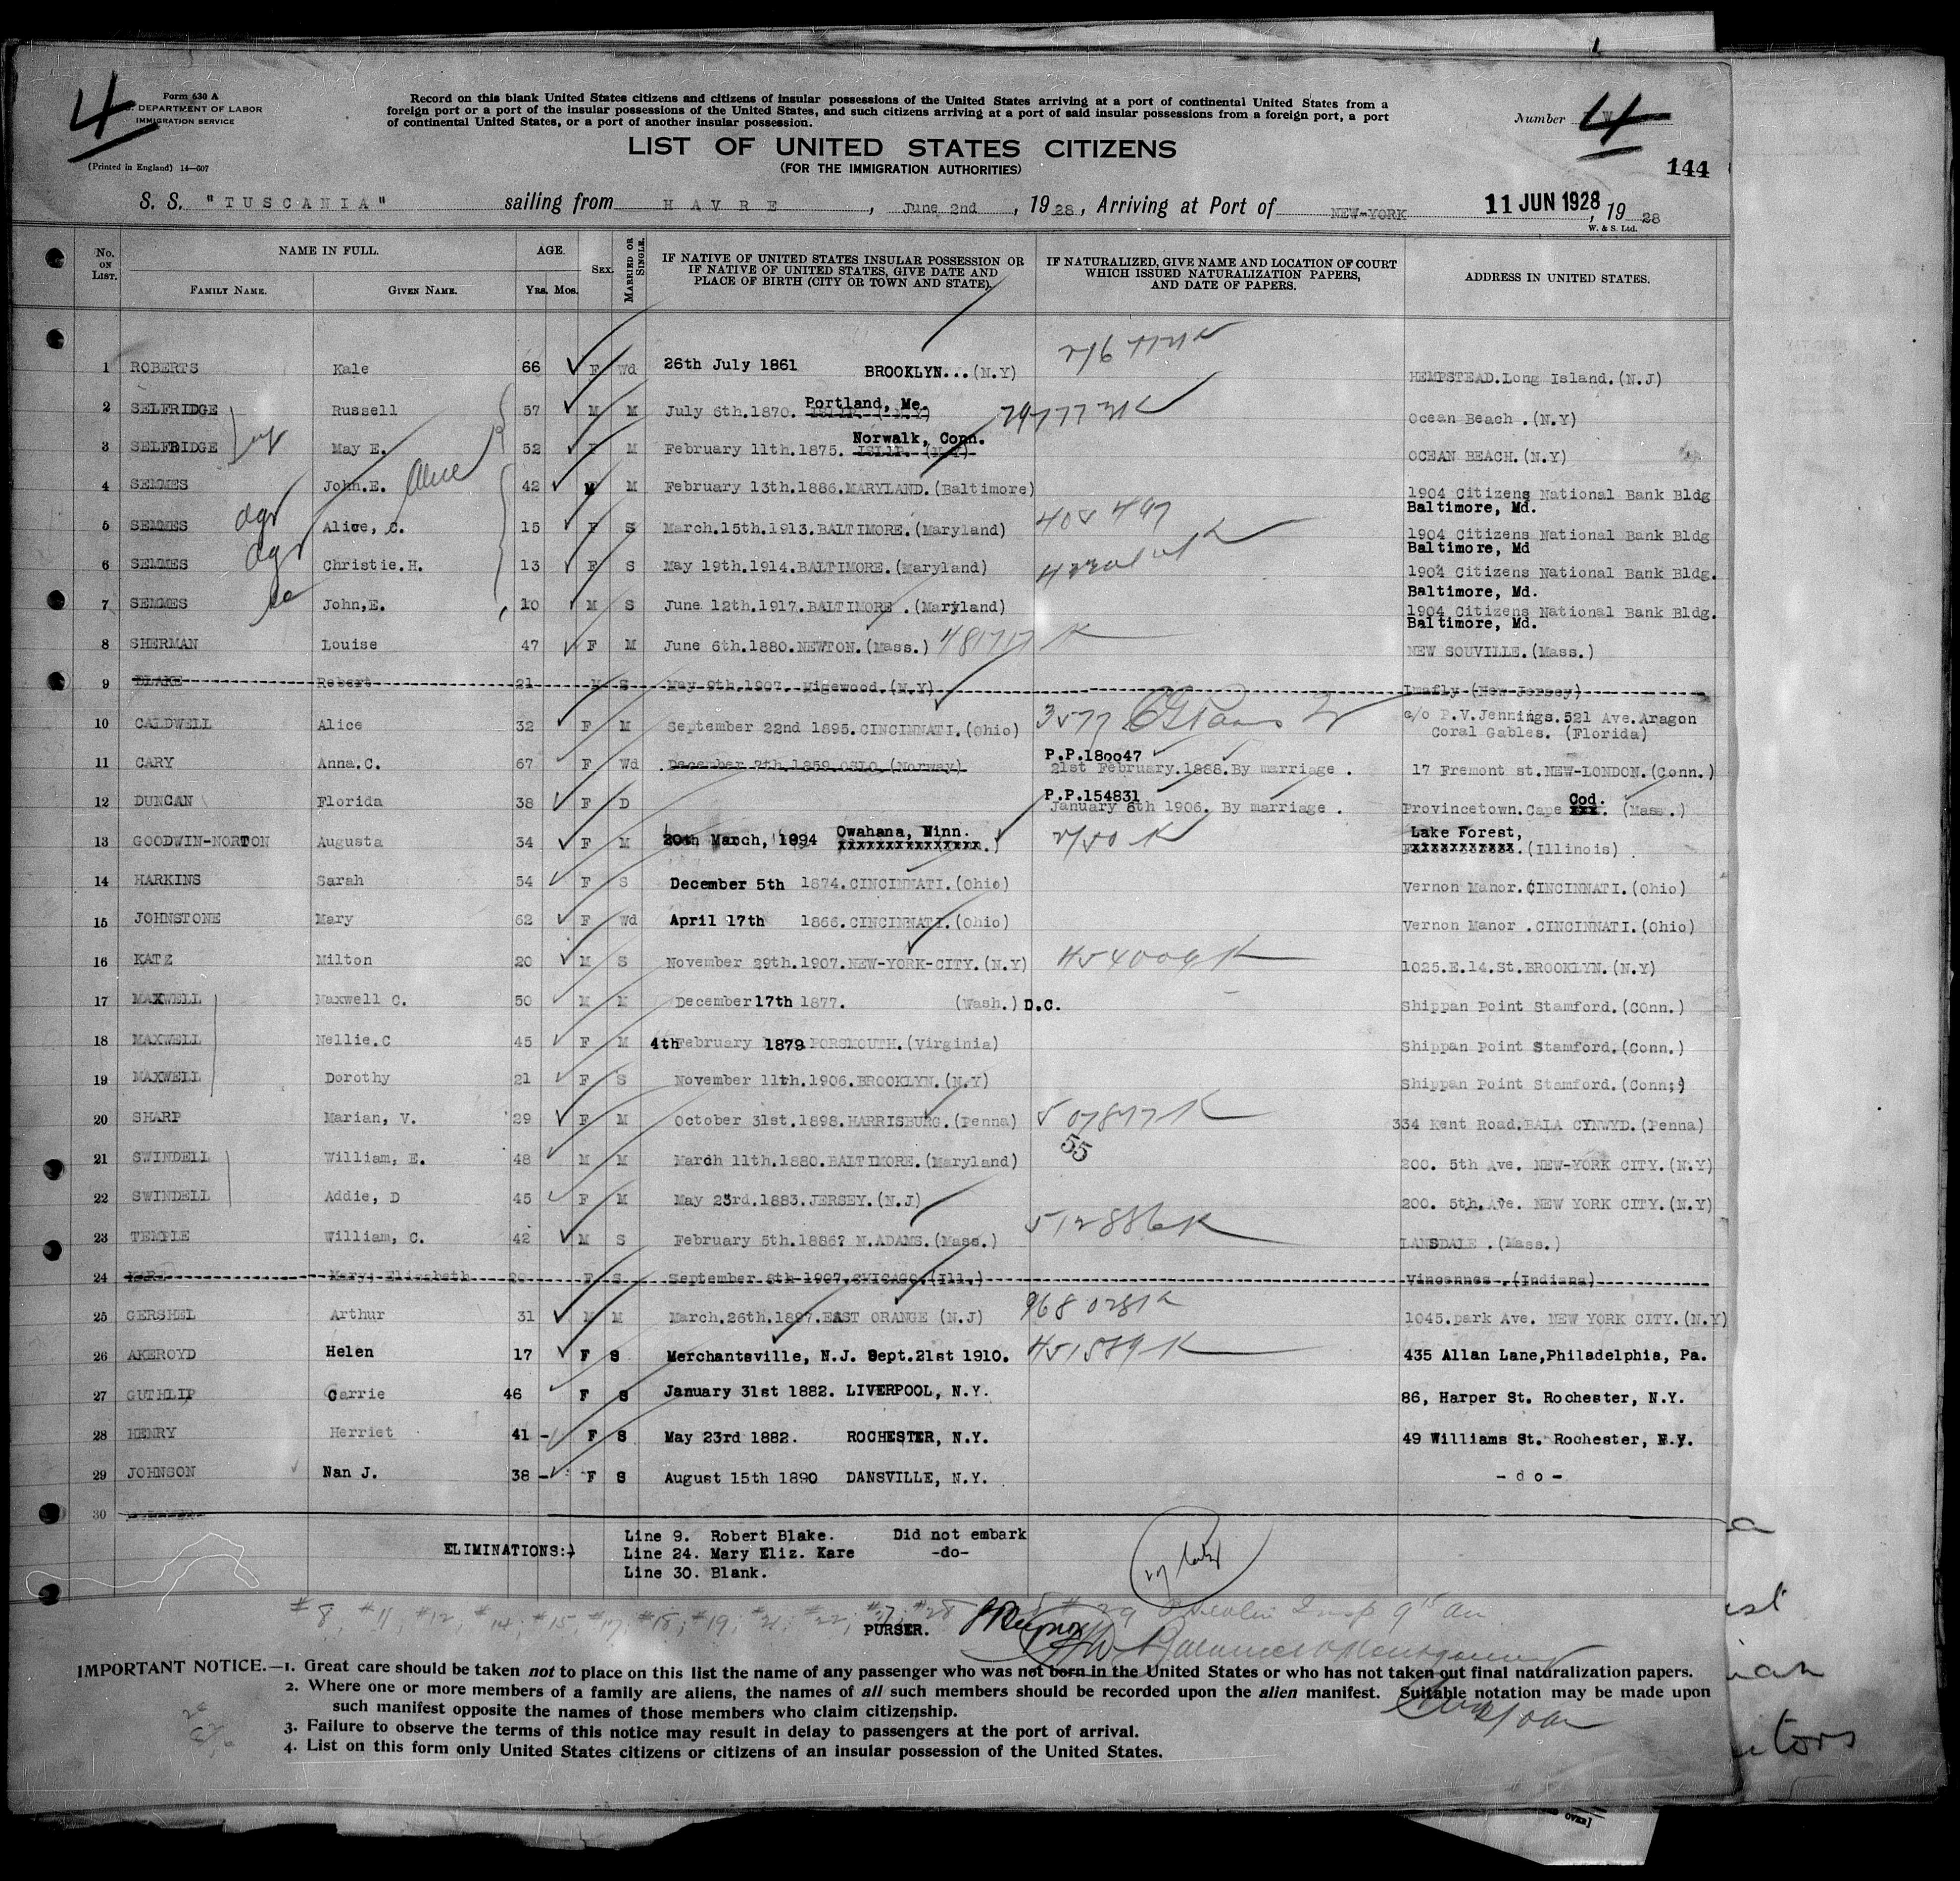 4
Form 630 A
U.S. DEPARTMENT OF LABOR
IMMIGRATION SERVICE
(Printed in England) 14—607
Record on this blank United States citizens and citizens of insular possessions of the United States arriving at a port of continental United States from a
foreign port or a port of the insular possessions of the United States, and such citizens arriving at a port of said insular possessions from a foreign port, a port
of continental United States, or a port of another insular possession.
Number 4
LIST OF UNITED STATES CITIZENS
(FOR THE IMMIGRATION AUTHORITIES)
144
S. S. "TUSCANIA" sailing from HAVRE, June 2nd, 1928, Arriving at Port of NEW-YORK 11 JUN 1928, 1928
W. & S. Ltd.
No. ON LIST. NAME IN FULL. FAMILY NAME. GIVEN NAME. AGE. Yrs. Mos. SEX. MARRIED OR SINGLE. IF NATIVE OF UNITED STATES INSULAR POSSESSION OR IF NATIVE OF UNITED STATES, GIVE DATE AND PLACE OF BIRTH (CITY OR TOWN AND STATE). IF NATURALIZED, GIVE NAME AND LOCATION OF COURT WHICH ISSUED NATURALIZATION PAPERS, AND DATE OF PAPERS. ADDRESS IN UNITED STATES.
1 ROBERTS Kale 66 F Wd 26th July 1861 BROOKLYN...(N.Y) HEMPSTEAD.Long Island.(N.J)
2 SELFRIDGE Russell 57 M M July 6th.1870. Portland, Me. ISLIP. (N.Y) Ocean Beach .(N.Y)
3 SELFRIDGE May E. 52 F M February 11th.1875. Norwalk, Conn. ISLIP. (N.Y) OCEAN BEACH.(N.Y)
4 SEMMES John.E. 42 M M February 13th.1886.MARYLAND.(Baltimore) 1904 Citizens National Bank Bldg
Baltimore, Md.
5 SEMMES Alice, C. Alice 15 F S March.15th.1913.BALTIMORE.(Maryland) 1904 Citizens National Bank Bldg
Baltimore, Md
6 SEMMES Christie.H. 13 F S May 19th.1914.BALTIMORE.(Maryland) 1904 Citizens National Bank Bldg.
Baltimore, Md.
7 SEMMES John,E. 10 M S June 12th.1917.BALTIMORE .(Maryland) 1904 Citizens National Bank Bldg.
Baltimore, Md.
8 SHERMAN Louise 47 F M June 6th.1880.NEWTON.(Mass.) 481717 K NEW SOUVILLE.(Mass.)
9 BLAKE Robert 21 M S May 9th.1907. Migewood.(N.Y) Imafly (New Jersey)
10 CALDWELL Alice 32 F M September 22nd 1895.CINCINNATI.(Ohio) 3577 c/o P.V.Jennings.521 Ave.Aragon
Coral Gables. (Florida)
11 CARY Anna.C. 67 F Wd December 7th.1859.OSLO.(Norway) P.P.180047
21st February.1888.By marriage . 17 Fremont st.NEW-LONDON.(Conn.)
12 DUNCAN Florida 38 F D P.P.154831
January 8th 1906. By marriage . Provincetown.Cape Cod. xxx. (Mass.)
13 GOODWIN-NORTON Augusta 34 F M 20th March, 1894 Owahana, Minn. 2150 K Lake Forest,
(Illinois)
14 HARKINS Sarah 54 F S December 5th 1874.CINCINNATI.(Ohio) Vernon Manor.CINCINNATI.(Ohio)
15 JOHNSTONE Mary 62 F Wd April 17th 1866.CINCINNATI.(Ohio) Vernon Manor .CINCINNATI.(Ohio)
16 KATZ Milton 20 M S November 29th.1907.NEW-YORK-CITY.(N.Y) 454009 K 1025.E.14.St.BROOKLYN.(N.Y)
17 MAXWELL Maxwell C. 50 M M December 17th 1877. (Wash.) D.C. Shippan Point Stamford.(Conn.)
18 MAXWELL Nellie.C 45 F M 4th February 1879 PORSMOUTH.(Virginia) Shippan Point Stamford.(Conn.)
19 MAXWELL Dorothy 21 F S November 11th.1906.BROOKLYN.(N.Y) Shippan Point Stamford.(Conn;)
20 SHARP Marian, V. 29 F M October 31st.1898.HARRISBURG.(Penna) 507877 K 334 Kent Road.BALA CYNWYD.(Penna)
55
21 SWINDELL William, E. 48 M M March 11th.1880.BALTIMORE.(Maryland) 200. 5th Ave. NEW-YORK CITY.(N.Y)
22 SWINDELL Addie, D 45 F M May 23rd.1883.JERSEY.(N.J) 200. 5th.Ave. NEW YORK CITY.(N.Y)
23 TEMPLE William, C. 42 M S February 5th.1886? N.ADAMS.(Mass.) 512886 K LANSDALE .(Mass.)
24 KARE Mary, Elizabeth 20 F S September 8th 1907.CHICAGO.(Ill.) Vincennes .(Indiana)
25 GERSHEL Arthur 31 M M March.26th.1897.EAST ORANGE (N.J) 968028 K 1045.park Ave. NEW YORK CITY.(N.Y)
26 AKEROYD Helen 17 F S Merchantsville, N.J. Sept.21st 1910. 451589 K 435 Allan Lane,Philadelphia, Pa.
27 GUTHLIP Carrie 46 F S January 31st 1882. LIVERPOOL, N.Y. 86, Harper St. Rochester, N.Y.
28 HENRY Herriet 41 - F S May 23rd 1882. ROCHESTER, N.Y. 49 Williams St. Rochester, N.Y.
29 JOHNSON Nan J. 38 - F S August 15th 1890 DANSVILLE, N.Y. - d o -
30
ELIMINATIONS:- Line 9. Robert Blake. Did not embark
Line 24. Mary Eliz. Kare -do-
Line 30. Blank.
#8, #11, #12, #14, #15, #17, #18, #19, #21, #22, #7, #28 #29
PURSER.
IMPORTANT NOTICE.—1. Great care should be taken not to place on this list the name of any passenger who was not born in the United States or who has not taken out final naturalization papers.
2. Where one or more members of a family are aliens, the names of all such members should be recorded upon the alien manifest. Suitable notation may be made upon
such manifest opposite the names of those members who claim citizenship.
3. Failure to observe the terms of this notice may result in delay to passengers at the port of arrival.
4. List on this form only United States citizens or citizens of an insular possession of the United States.
OVER]